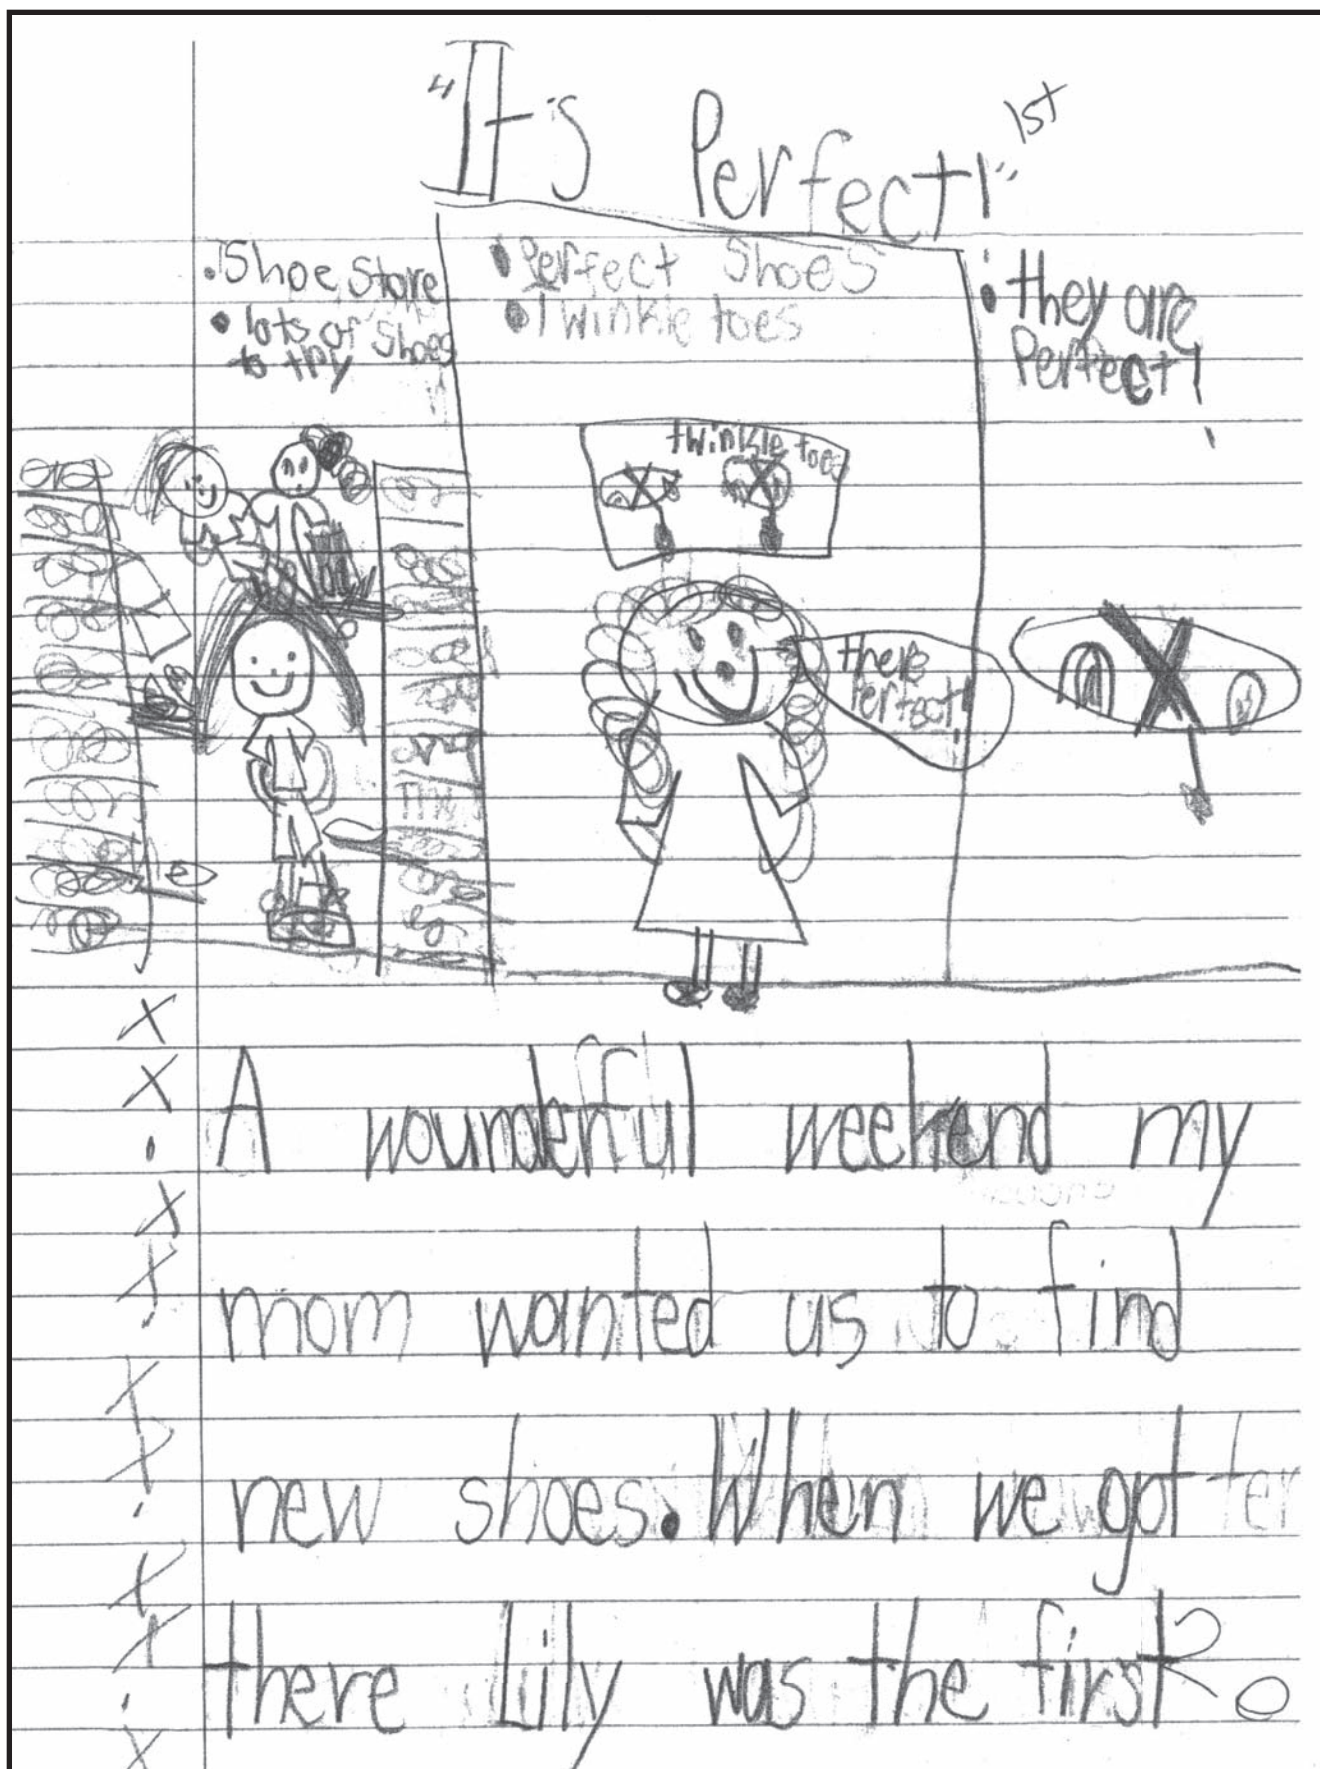 "It's Perfect!"
1st
• Shoe Store
• lots of Shoes
to try
• Perfect Shoes
• Twinkle toes
• they are
Perfect!
twinkle toes
there
Perfect!
A wounderful weekend my
mom wanted us to find
new shoes. When we got
there Lily was the first